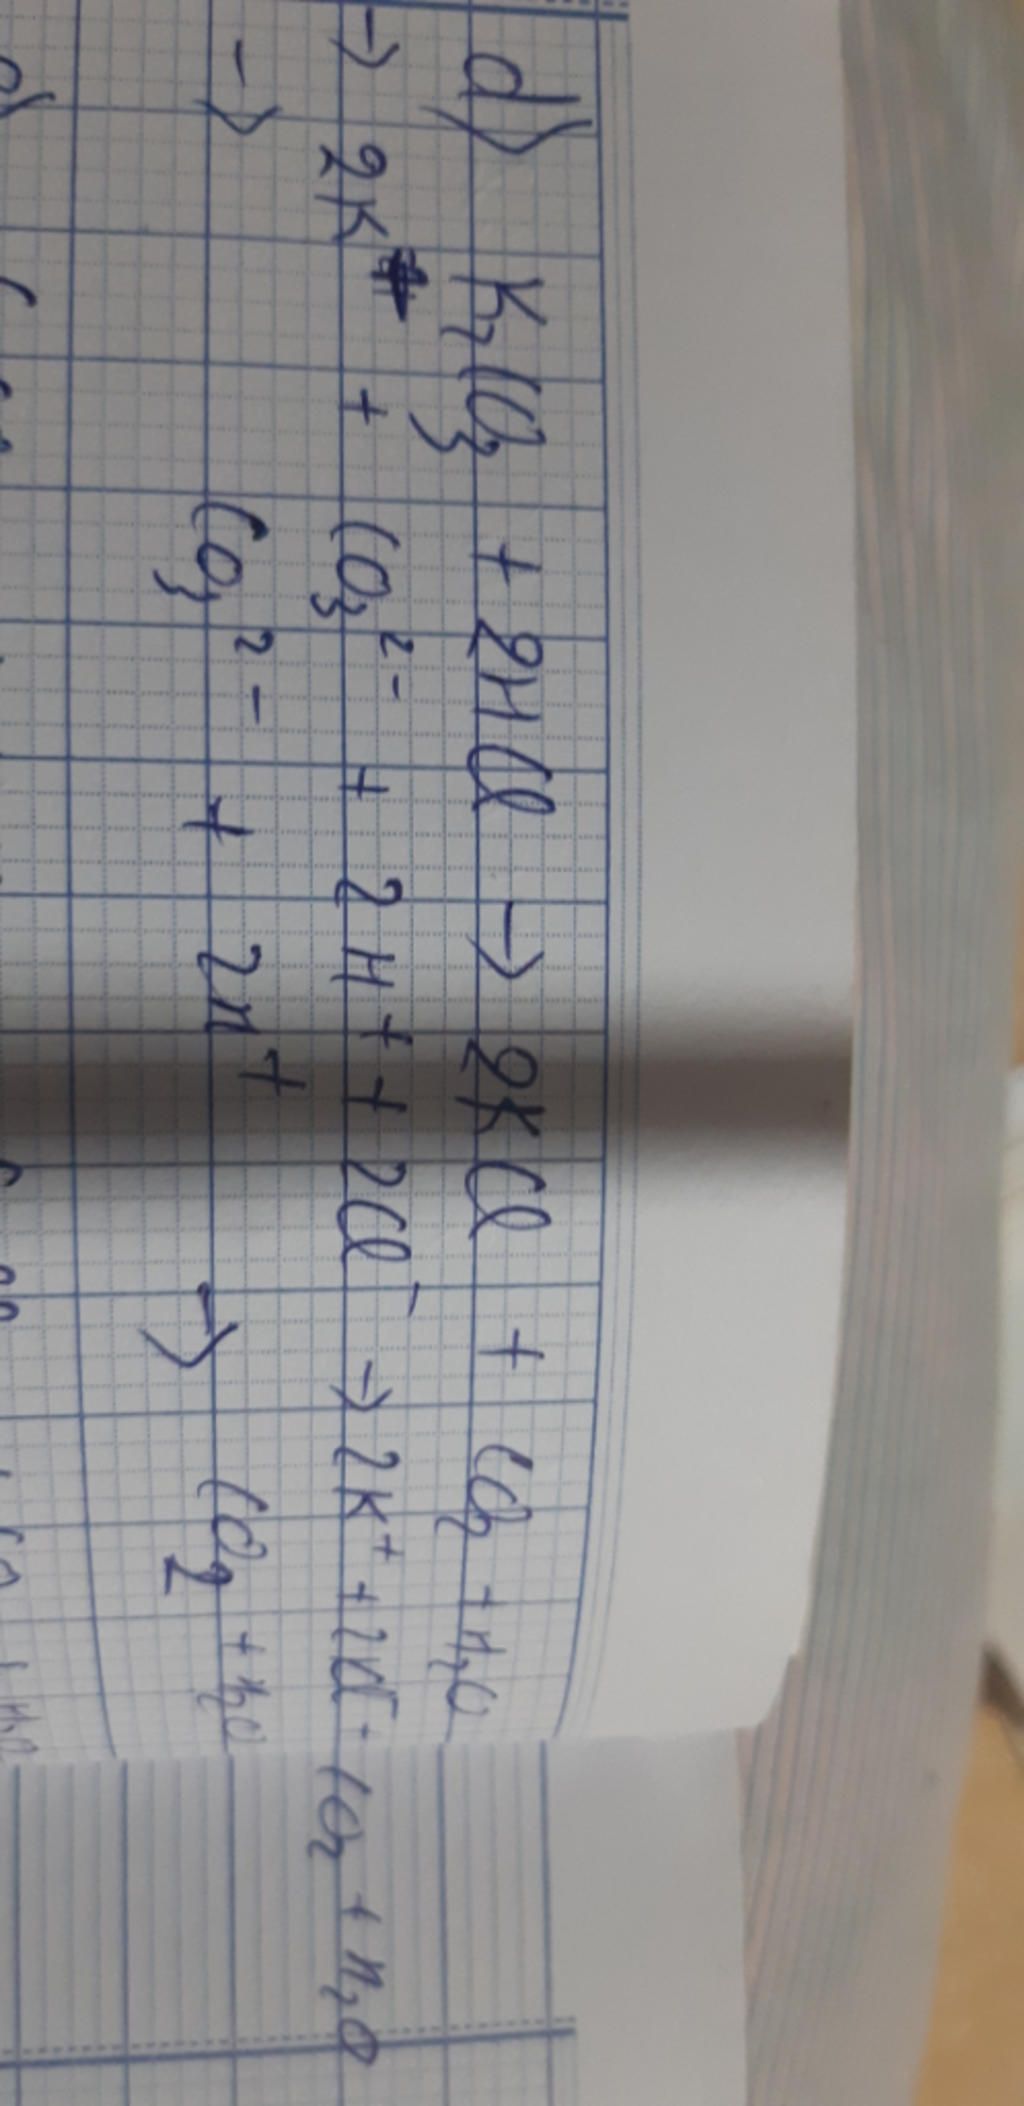 d) K₂CO₃ + 2HCl → 2KCl + CO₂ + H₂O
→ 2K⁺ + CO₃²⁻ + 2H⁺ + 2Cl⁻ → 2K⁺ + 2Cl⁻ + CO₂ + H₂O
→ CO₃²⁻ + 2H⁺ → CO₂ + H₂O